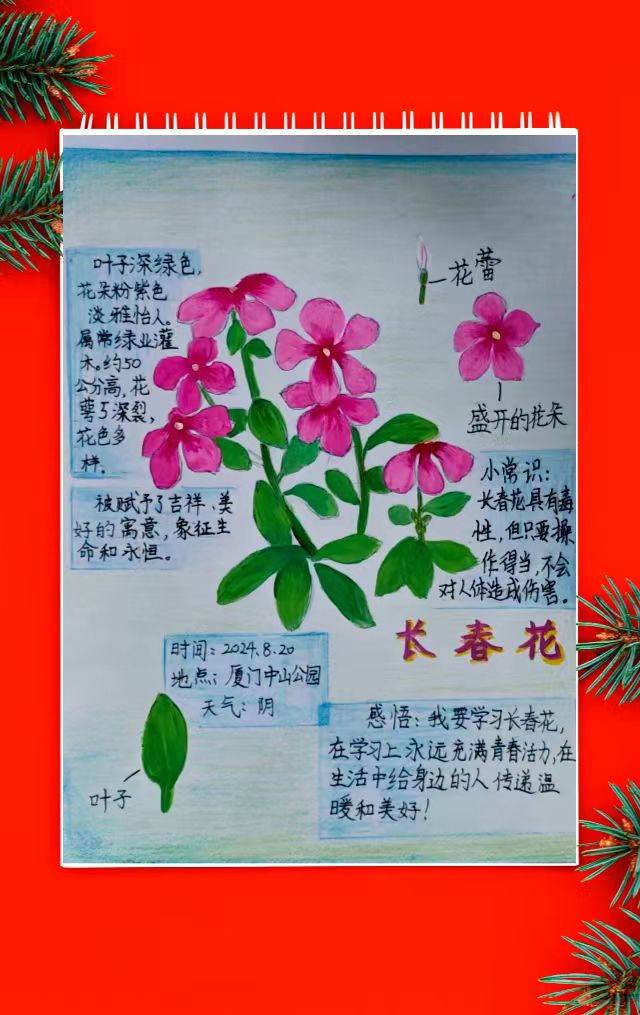 叶子深绿色，
花朵粉紫色
淡雅怡人。
属常绿业灌
木。约50
公分高，花
萼5深裂，
花色多
样。
被赋予了吉祥、美
好的寓意，象征生
命和永恒。
花蕾
盛开的花朵
小常识：
长春花具有毒
性，但只要操
作得当，不会
对人体造成伤害。
长春花
时间：2024.8.20
地点：厦门中山公园
天气：阴
叶子
感悟：我要学习长春花，
在学习上永远充满青春活力，在
生活中给身边的人传递温
暖和美好！